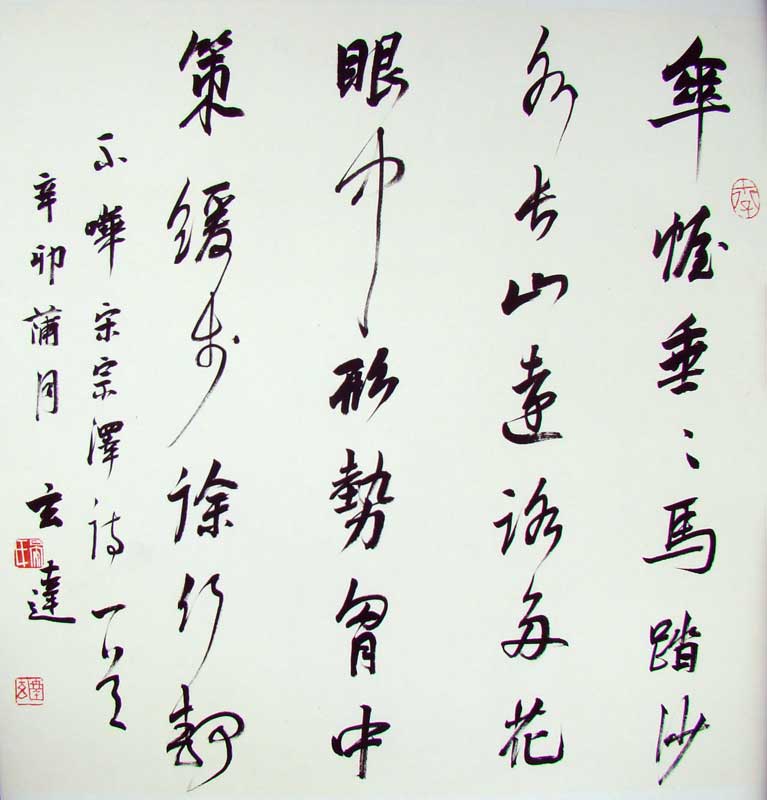 傘幄垂〻馬踏沙
水長山遠路多花
眼中形勢胷中
策緩步徐行静
不嘩 宋宗澤詩一首
辛卯蒲月 玄達